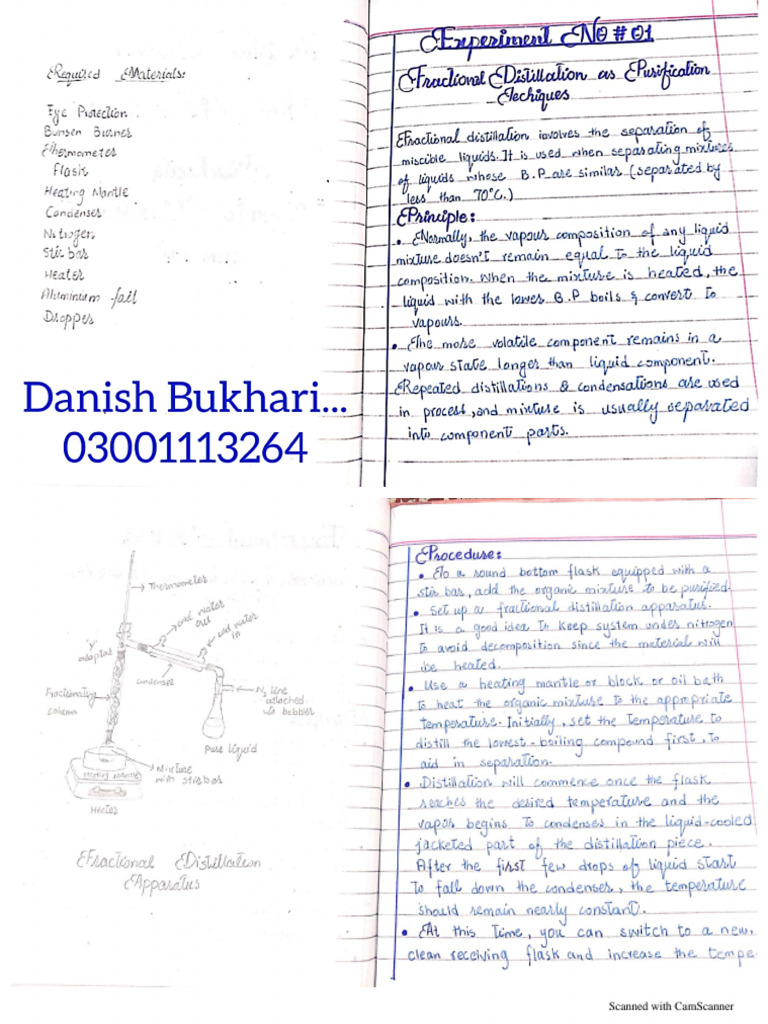 Required Materials:
Eye Protection
Bunsen Burner
Thermometer
Flask
Heating Mantle
Condenser
Nitrogen
Stir bar
Heater
Aluminium foil
Dropper
Danish Bukhari...
03001113264
Experiment No # 01
Fractional Distillation as Purification
Techiques
Fractional distillation involves the separation of
miscible liquids. It is used when separating mixtures
of liquids whose B.P are similar (separated by
less than 70°C.)
Principle:
• Normally, the vapour composition of any liquid
mixture doesn't remain equal to the liquid
composition. When the mixture is heated, the
liquid with the lower B.P boils & convert to
vapours.
• The more volatile component remains in a
vapour state longer than liquid component.
Repeated distillations & condensations are used
in process, and mixture is usually separated
into component parts.
Thermometer
cold water
out
cold water
in
'Y'
adapter
Condenser
Fractionating
column
N₂ line
attached
to bubbler
Pure liquid
Mixture
with stir bar
Heating mantle
Heater
Fractional Distillation
Apparatus
Procedure:
• To a round bottom flask equipped with a
stir bar, add the organic mixture to be purified.
• Set up a fractional distillation apparatus.
It is a good idea to keep system under nitrogen
to avoid decomposition since the material will
be heated.
• Use a heating mantle or block or oil bath
to heat the organic mixture to the appropriate
temperature. Initially, set the temperature to
distill the lowest-boiling compound first, to
aid in separation.
• Distillation will commence once the flask
reaches the desired temperature and the
vapor begins to condenses in the liquid-cooled
jacketed part of the distillation piece.
After the first few drops of liquid start
to fall down the condenser, the temperature
should remain nearly constant.
• At this time, you can switch to a new,
clean receiving flask and increase the tempe-
Scanned with CamScanner